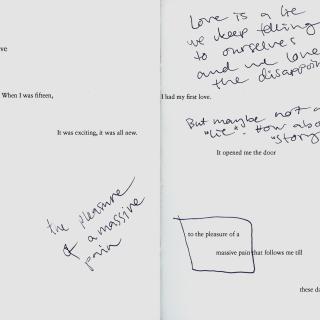 ve
When I was fifteen,
It was exciting, it was all new.
the pleasure
of a massive
pain
Love is a lie
we keep telling
to ourselves
and we love
the disappoin
I had my first love.
But maybe not a
"lie". How abo
"story
It opened me the door
to the pleasure of a
massive pain that follows me till
these da